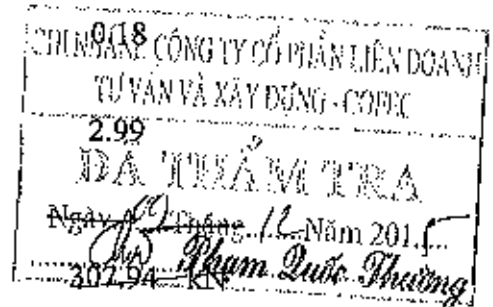 0.18
CHI NHÁNH CÔNG TY CỔ PHẦN LIÊN DOANH
TƯ VẤN VÀ XÂY DỰNG - COFEC
2.99
ĐÃ THẨM TRA
Ngày Tháng 12 Năm 201
Phạm Quốc Thường
302.94 KN